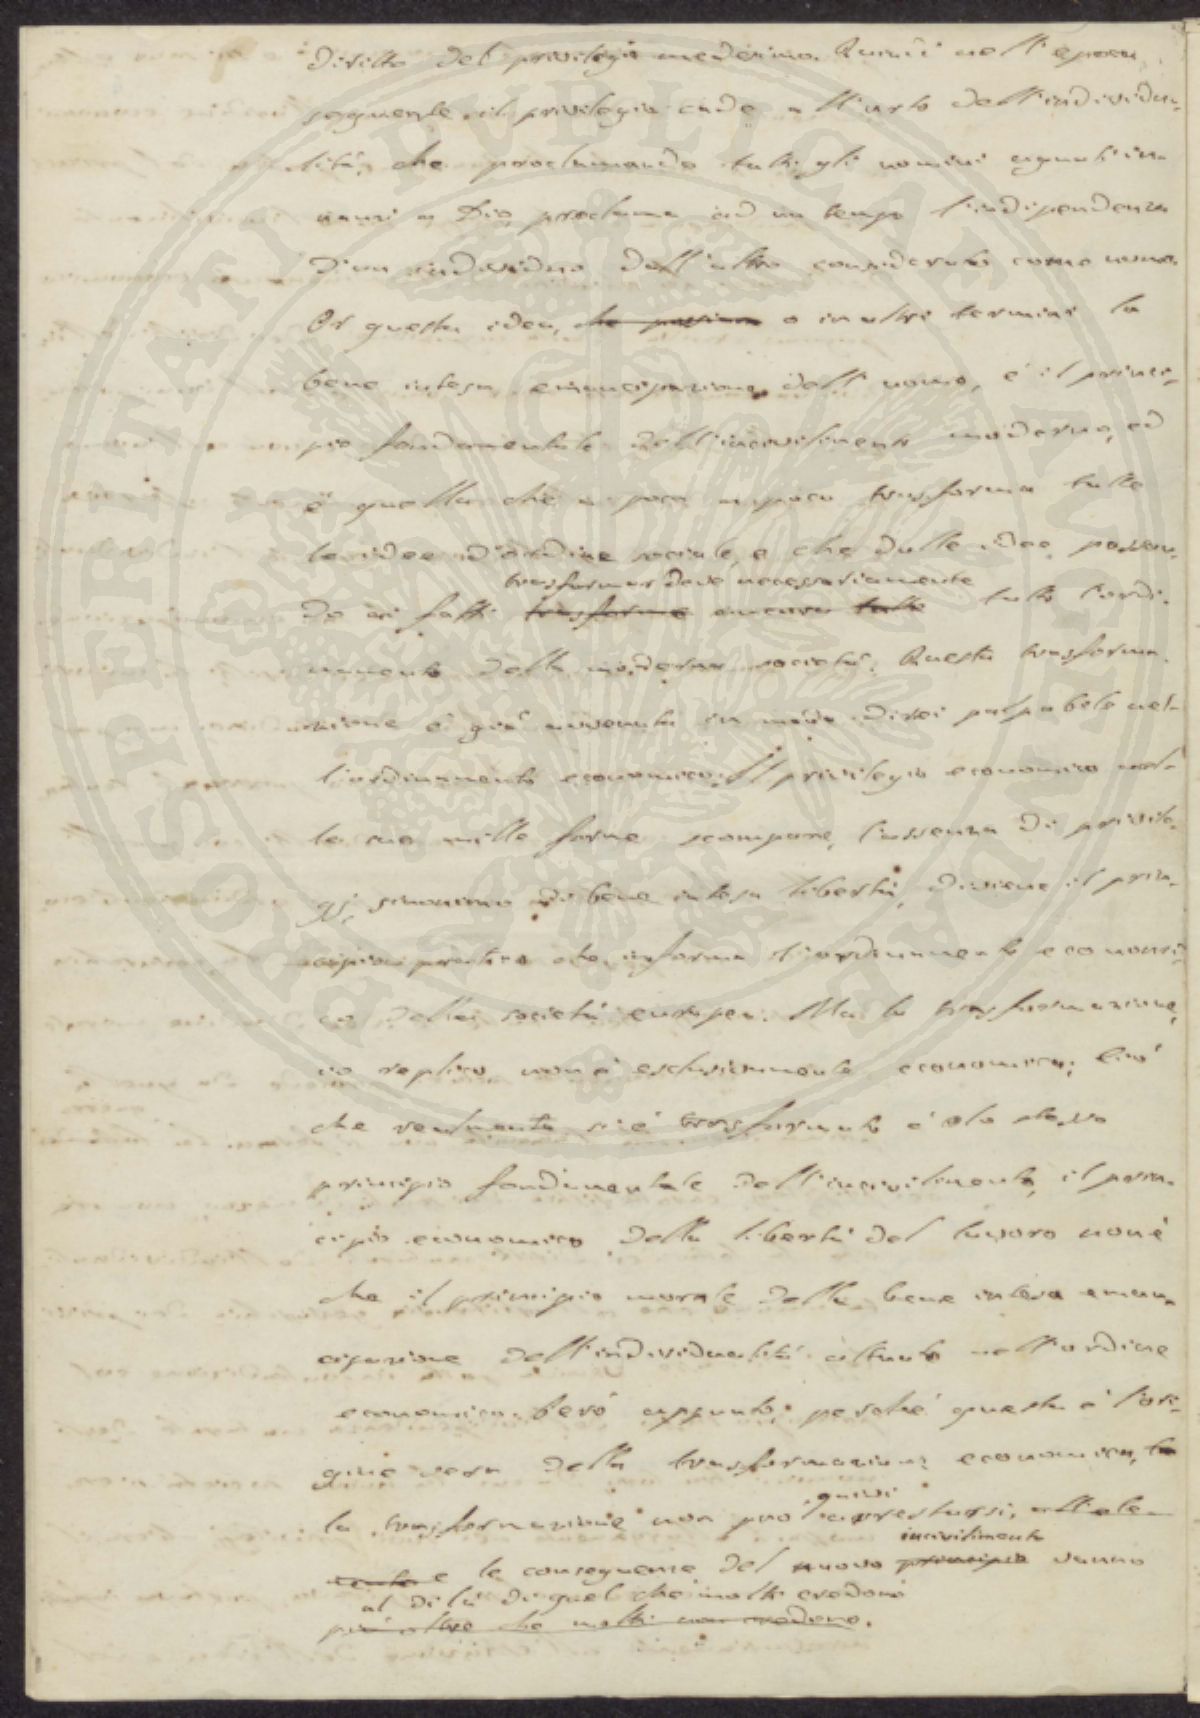 diritto del privilegio medesimo. Quindi nell'epoca
seguente il privilegio cade all'urto dell'individua-
lità, che proclamando tutti gli uomini eguali in-
nanzi a Dio, proclama ad un tempo l'indipendenza
d'un individuo dall'altro considerato come uomo.
Or questa idea, che o in altri termini la
bene intesa emancipazione dell'uomo, è il princi-
pio fondamentale dell'incivilimento moderno, ed
è quella che a poca a poca trasforma tutte
le idee d'ordine sociale, e che dalle idee passan-
trasformar deve necessariamente
do ai fatti trasforma ancora tutto tutto l'ordi-
namento della moderna società. Questa trasforma-
zione è già avvenuta in modo direi palpabile nel-
l'ordinamento economico. Il privilegio economico nel-
le sue mille forme scompare, l'assenza di privile-
gj, sinonimo di bene intesa libertà, diviene il prin-
cipio pratico che informa l'ordinamento economi-
co della società europea. Ma la trasformazione,
io replico, non è esclusivamente economica; Ciò
che realmente si è trasformato è lo stesso
principio fondamentale dell'incivilimento, il prin-
cipio economico della libertà del lavoro non è
che il principio morale della bene intesa eman-
cipazione dell'individualità attuato nell'ordine
economico. Però appunto, perchè questa è l'ori-
gine vera della trasformazione economica, la
quivi
la trasformazione non può arrestarsi,
incivilimento
e le conseguenze del nuovo principio vanno
al di là di quel che molti credono
più oltre che molti non credono.